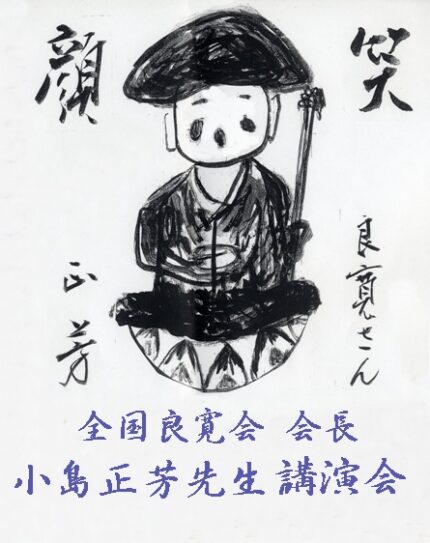 笑顔
良寛さん
正芳
全国良寛会 会長
小島正芳先生講演会